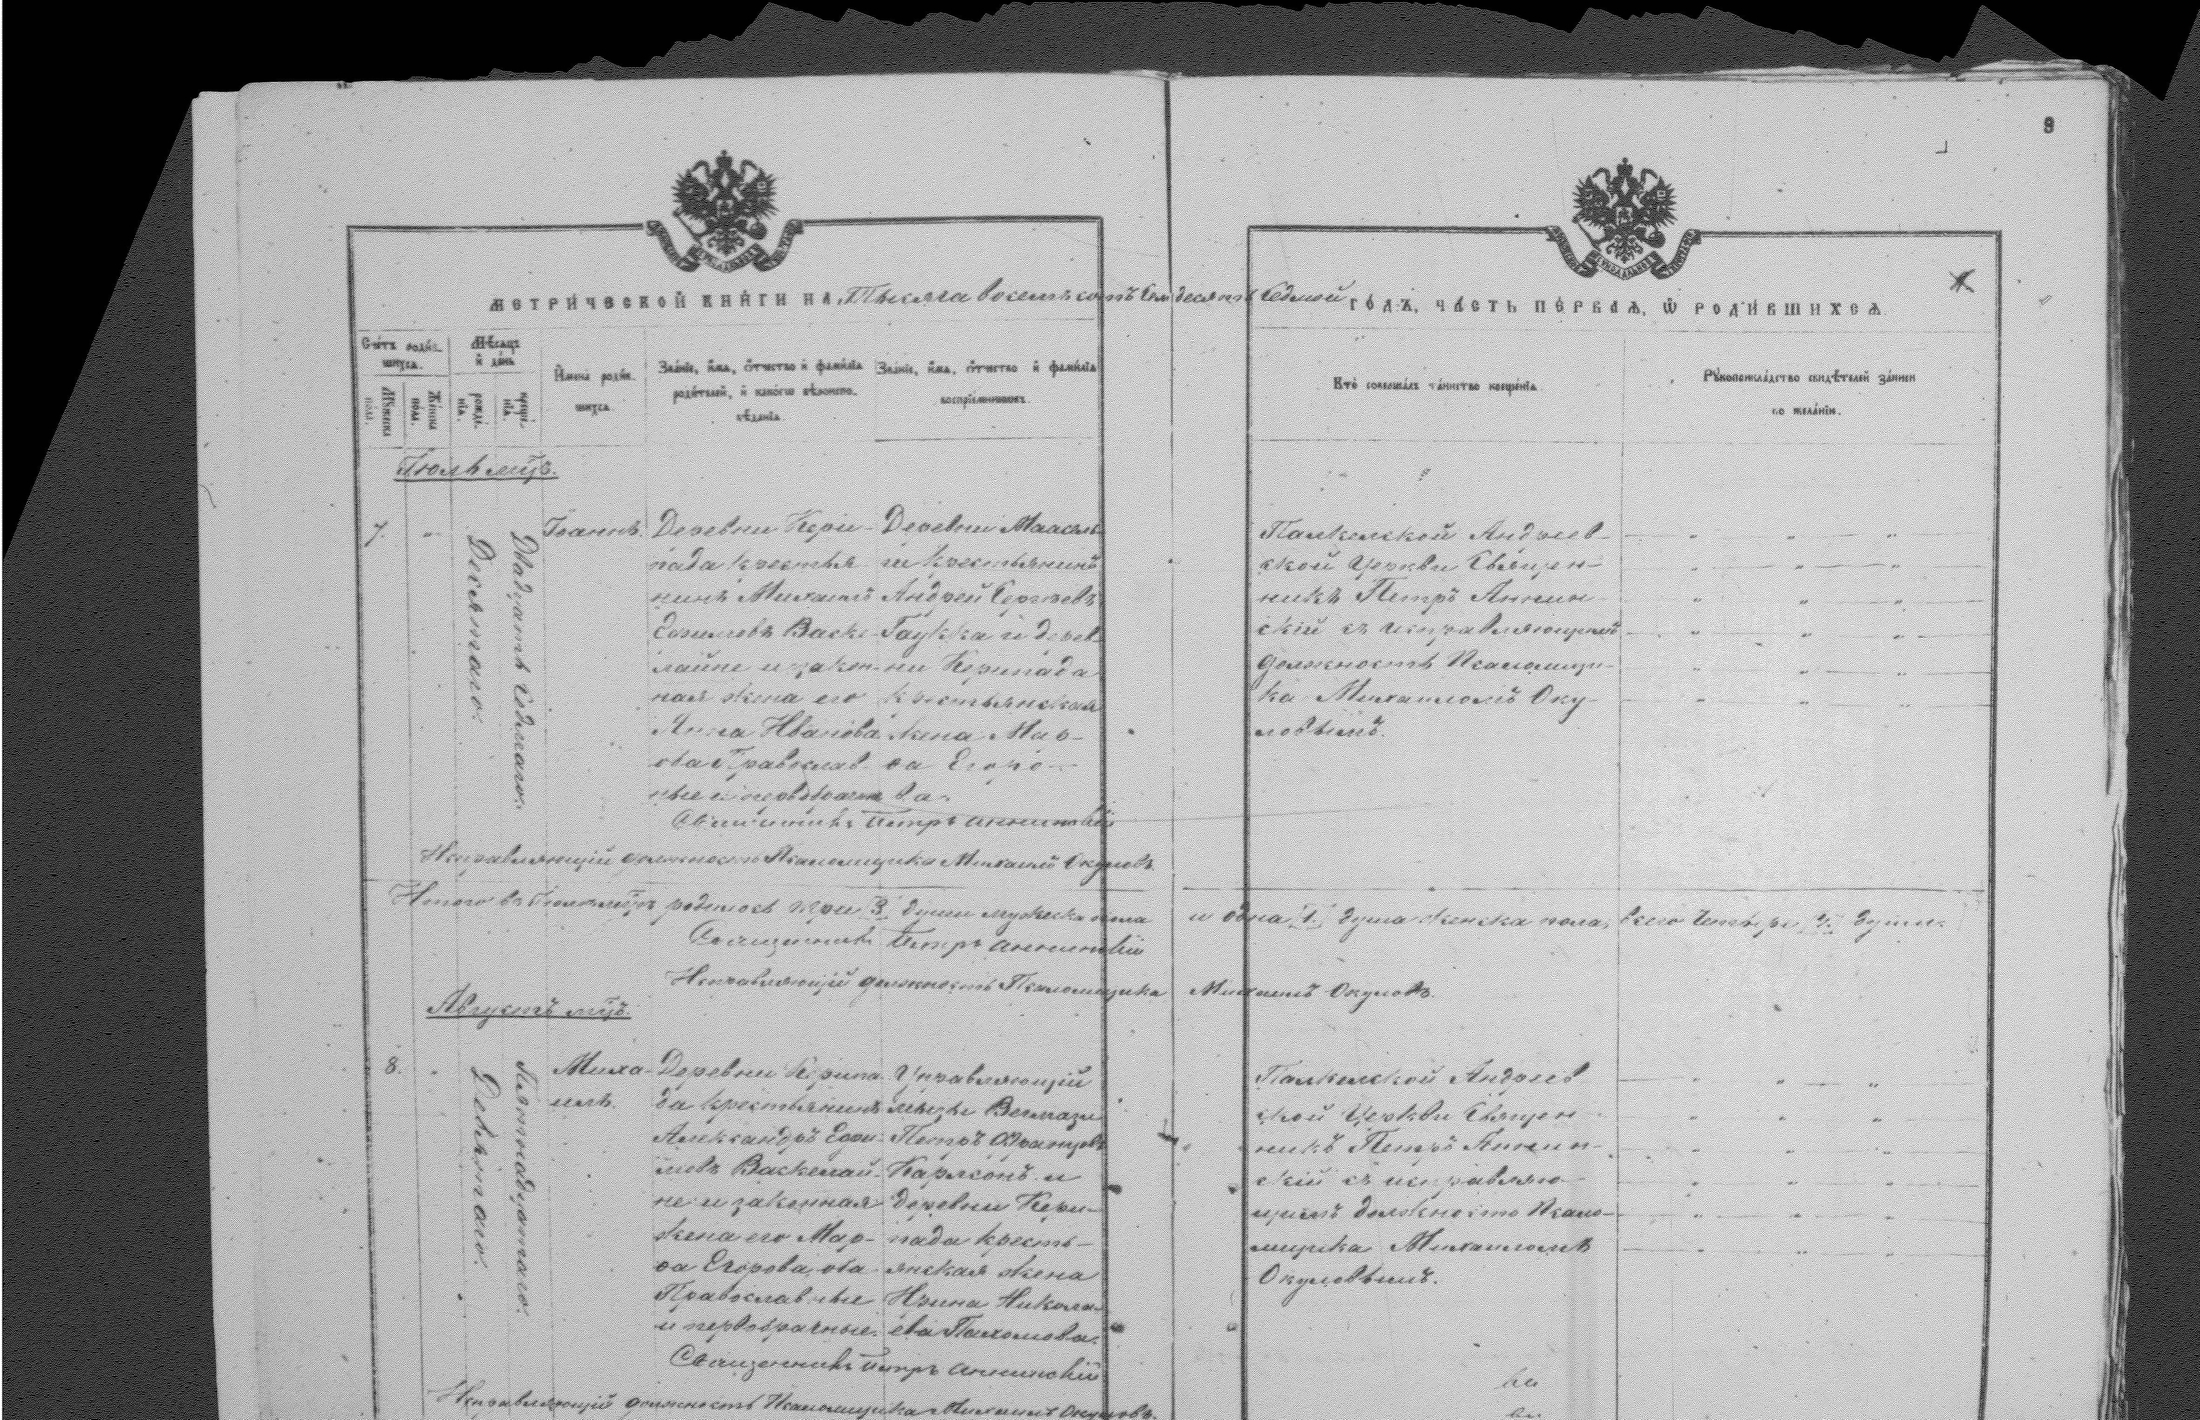 9
МЕТРИЧЕСКОЙ КНИГИ НА Тысяча восемьсотъ семьдесятъ седмой ГОДЪ, ЧАСТЬ ПЕРВАЯ, Ѿ РОДИВШИХСЯ
Счетъ родившихся.
Мужеска пола.
Женска пола.
Мѣсяцъ и день
рожденія.
крещенія.
Имена родившихся.
Званіе, имя, отчество и фамилія
родителей, и какого вѣроисповѣданія.
Званіе, имя, отчество и фамилія
воспріемниковъ.
Кто совершалъ таинство крещенія.
Рукоприкладство свидѣтелей записи
по желанію.
Іюль мцъ.
7.
Десятаго.
Двадцать седмаго.
Іоаннъ.
Деревни Кери-
пада крестья-
нинъ Михаилъ
Ефимовъ Васке-
лайне и закон-
ная жена его
Анна Иванова
оба Православ-
ные и первобрачные
Деревни Мааселъ-
ги крестьянинъ
Андрей Сергѣевъ
Гаукка и дерев-
ни Керипада
крестьянская
жена Мар-
ѳа Егоро-
ва.
Палкельской Андреев-
ской Церкви Священ-
никъ Петръ Аннин-
скій съ исправляющимъ
должность Псаломщи-
ка Михаиломъ Оку-
ловымъ.
Священникъ Петръ Аннинскій
Исправляющій должность Псаломщика Михаилъ Окуловъ.
Итого въ Іюлѣ мцѣ родилось три 3. души мужеска пола и одна 1. душа женска пола, всего четыре 4. души.
Священникъ Петръ Аннинскій
Исправляющій должность Псаломщика Михаилъ Окуловъ.
Августъ мцъ.
8.
Девятаго.
Пятнадцатаго.
Миха-
илъ.
Деревни Керипа-
да крестьянинъ
Александръ Ефи-
мовъ Васкелай-
не и законная
жена его Мар-
ѳа Егорова, оба
Православные
и первобрачные.
Управляющій
мызы
Петръ Францовъ
Карлсонъ и
деревни Кери-
пада кресть-
янская жена
Ирина Никола-
ева Пахомова.
Палкельской Андреев-
ской Церкви Священ-
никъ Петръ Аннин-
скій съ исправляю-
щимъ должность Псало-
мщика Михаиломъ
Окуловымъ.
Священникъ Петръ Аннинскій
Исправляющій должность Псаломщика Михаилъ Окуловъ.